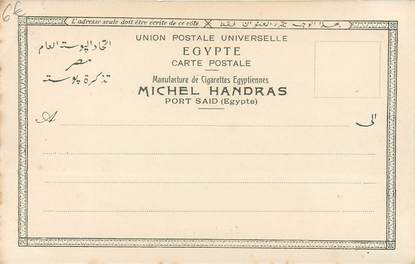 6E
L'adresse seule doit être écrite de ce côté
UNION POSTALE UNIVERSELLE
EGYPTE
CARTE POSTALE
اتحاد البوستة العام
مصر
تذكرة بوستة
Manufacture de Cigarettes Egyptiennes
MICHEL HANDRAS
PORT SAID (Egypte)
A
الى